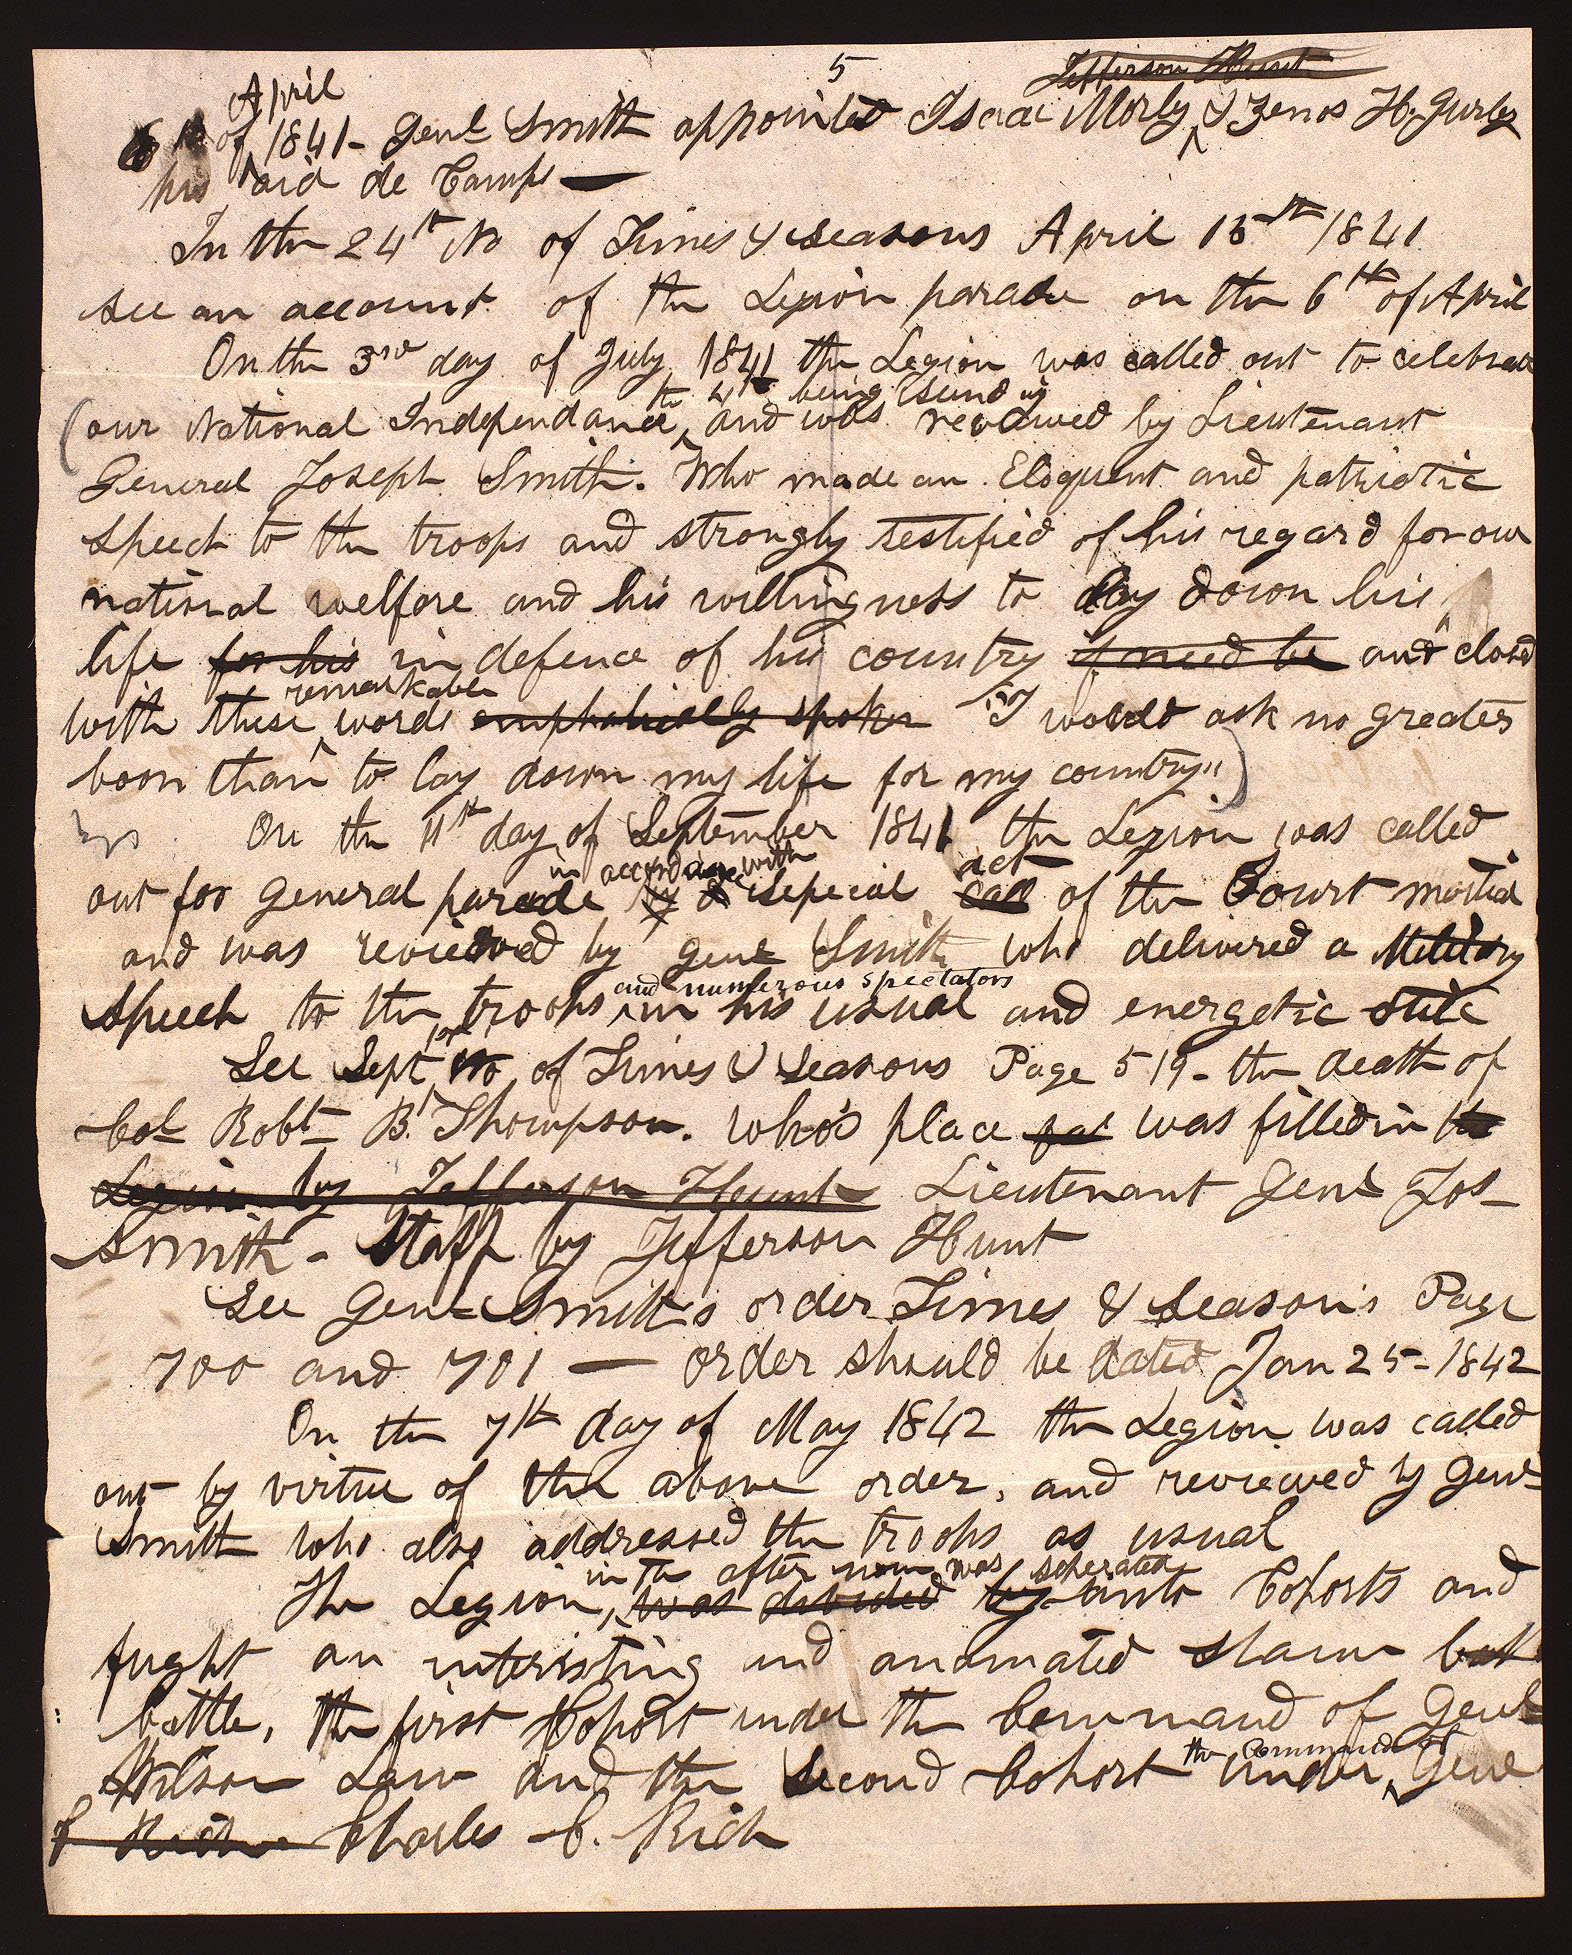 5
Jefferson Hunt
April
of 1841- Genl Smith appointed Isaac Morly & Zenos H. Gurley
his aid de Camps —
In the 24th No of Times & Seasons April 15th 1841
see an account of the Legion parade on the 6th of April
On the 3rd day of July 1841 the Legion was called out to celebrate
the 4th being Sunday
(our National Independance, and was reviewed by Lieutenant
General Joseph Smith. Who made an Eloquent and patriotic
speech to the troops and strongly testified of his regard for our
national welfare and his willingness to lay down his
life for his in defence of his country if need be and closed
remarkable
with these words emphatically spoken "I would ask no greater
boon than to lay down my life for my country")
On the 11th day of September 1841 the Legion was called
in accordance with act
out for general parade by a special call of the Court martial
and was reviewed by genl Smith who delivered a Military
and numerous spectators
speech to the troops in his usual and energetic stile
1st
See Sept No of Times & Seasons Page 519- the death of
Col Robt B. Thompson. who's place was filled in the
Legion by Jefferson Hunt Lieutenant Genl Jos-
Smith- Staff by Jefferson Hunt
See Genl Smith's order Times & Season's Page
700 and 701 — order should be dated Jan 25- 1842
On the 7th day of May 1842 the Legion was called
out by virtue of the above order, and reviewed by Genl
Smith who also addressed the troops as usual
in the after noon was seperated
The Legion, was divided by into Cohorts and
fught an interisting and anamated sham batt
battle, the first Cohort under the Command of Genl
the Command of
Wilson Law and the second Cohort under Genl
Charles C. Rich